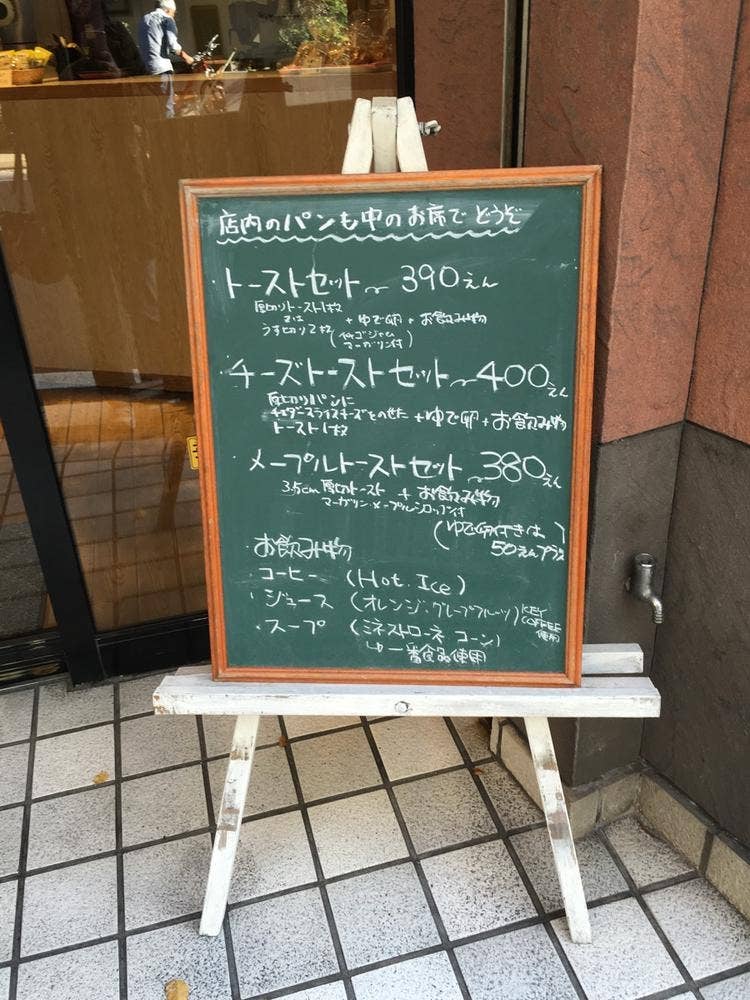 店内のパンも中のお席でどうぞ
トーストセット〜390えん
厚切りトースト1枚
又は
うす切り2枚
+ゆで卵+お飲み物
(イチゴジャム
マーガリン付)
チーズトーストセット〜400えん
厚切りパンに
チェダースライスチーズをのせた
トースト1枚
+ゆで卵+お飲み物
メープルトーストセット〜380えん
3.5cm厚切トースト+お飲み物
マーガリン・メープルシロップ付
(ゆで卵付きは
50えんプラス)
お飲み物
コーヒー (Hot. Ice)
・ジュース (オレンジ・グレープフルーツ)
KEY
COFFEE
使用
・スープ (ミネストローネ コーン)
↳一番食品使用